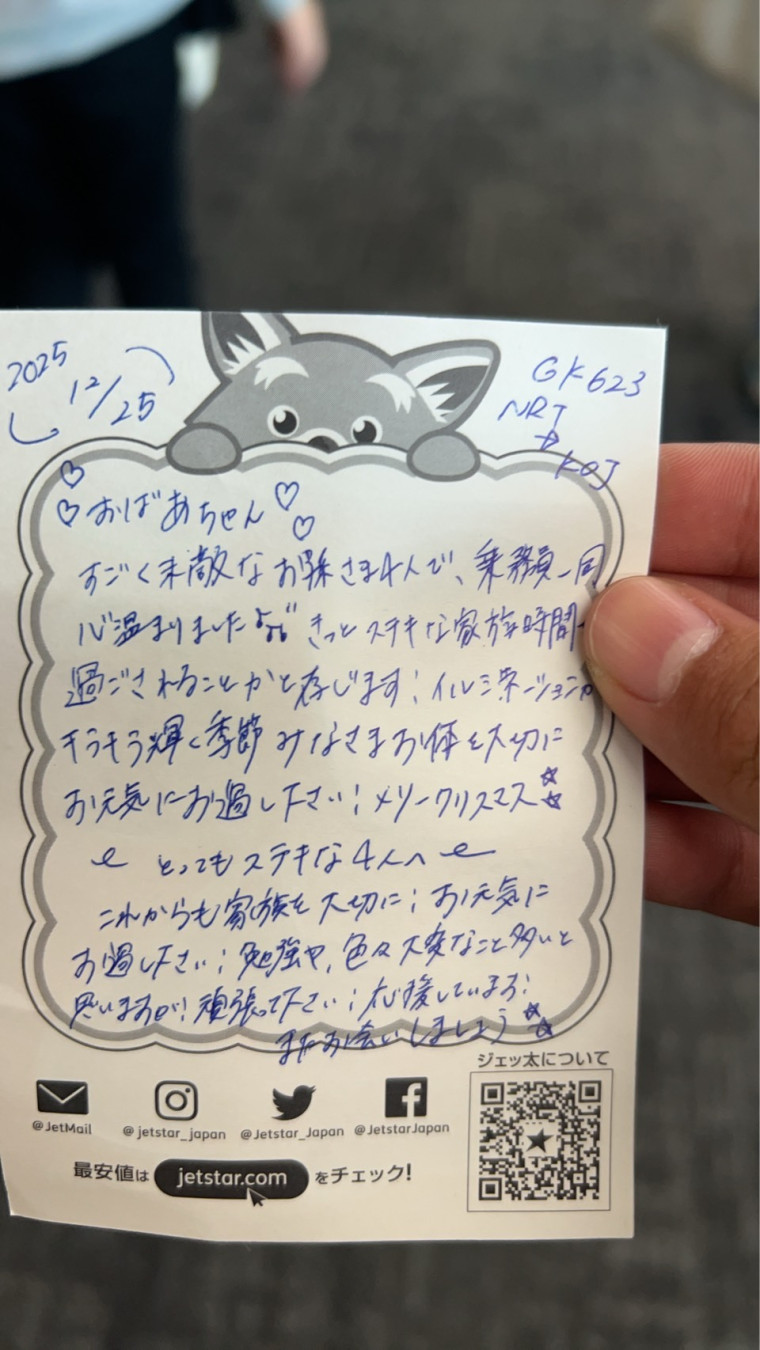 2025
12/25
GK623
NRT
→
KOJ
♡おばあちゃん♡
すごく素敵なお孫さま4人で、乗務員一同
心温まりました きっとステキな家族時間
過ごされることかと存じます! イルミネーション
キラキラ輝く季節 みなさまお体を大切に
お元気にお過し下さい! メリークリスマス☆
とってもステキな4人へ
これからも家族を大切に! お元気に
お過し下さい! 勉強や、色々大変なこと多いと
思いますが! 頑張って下さい! 応援しています!
またお会いしましょう☆
ジェッ太について
@JetMail @jetstar_japan @Jetstar_Japan @JetstarJapan
最安値は jetstar.com をチェック!